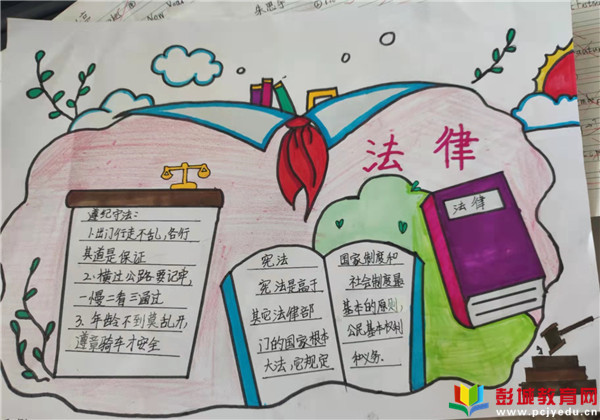 法律
遵纪守法:
1.出门行走不乱,各行
其道是保证
2.横过公路要记牢,
一慢二看三通过
3.年龄不到莫乱开,
遵章骑车才安全
宪法
宪法是高于
其它法律部
门的国家根本
大法,它规定
国家制度和
社会制度最
基本的原则,
公民基本权利
和义务。
法律
彭城教育网
www.pcjyedu.cn